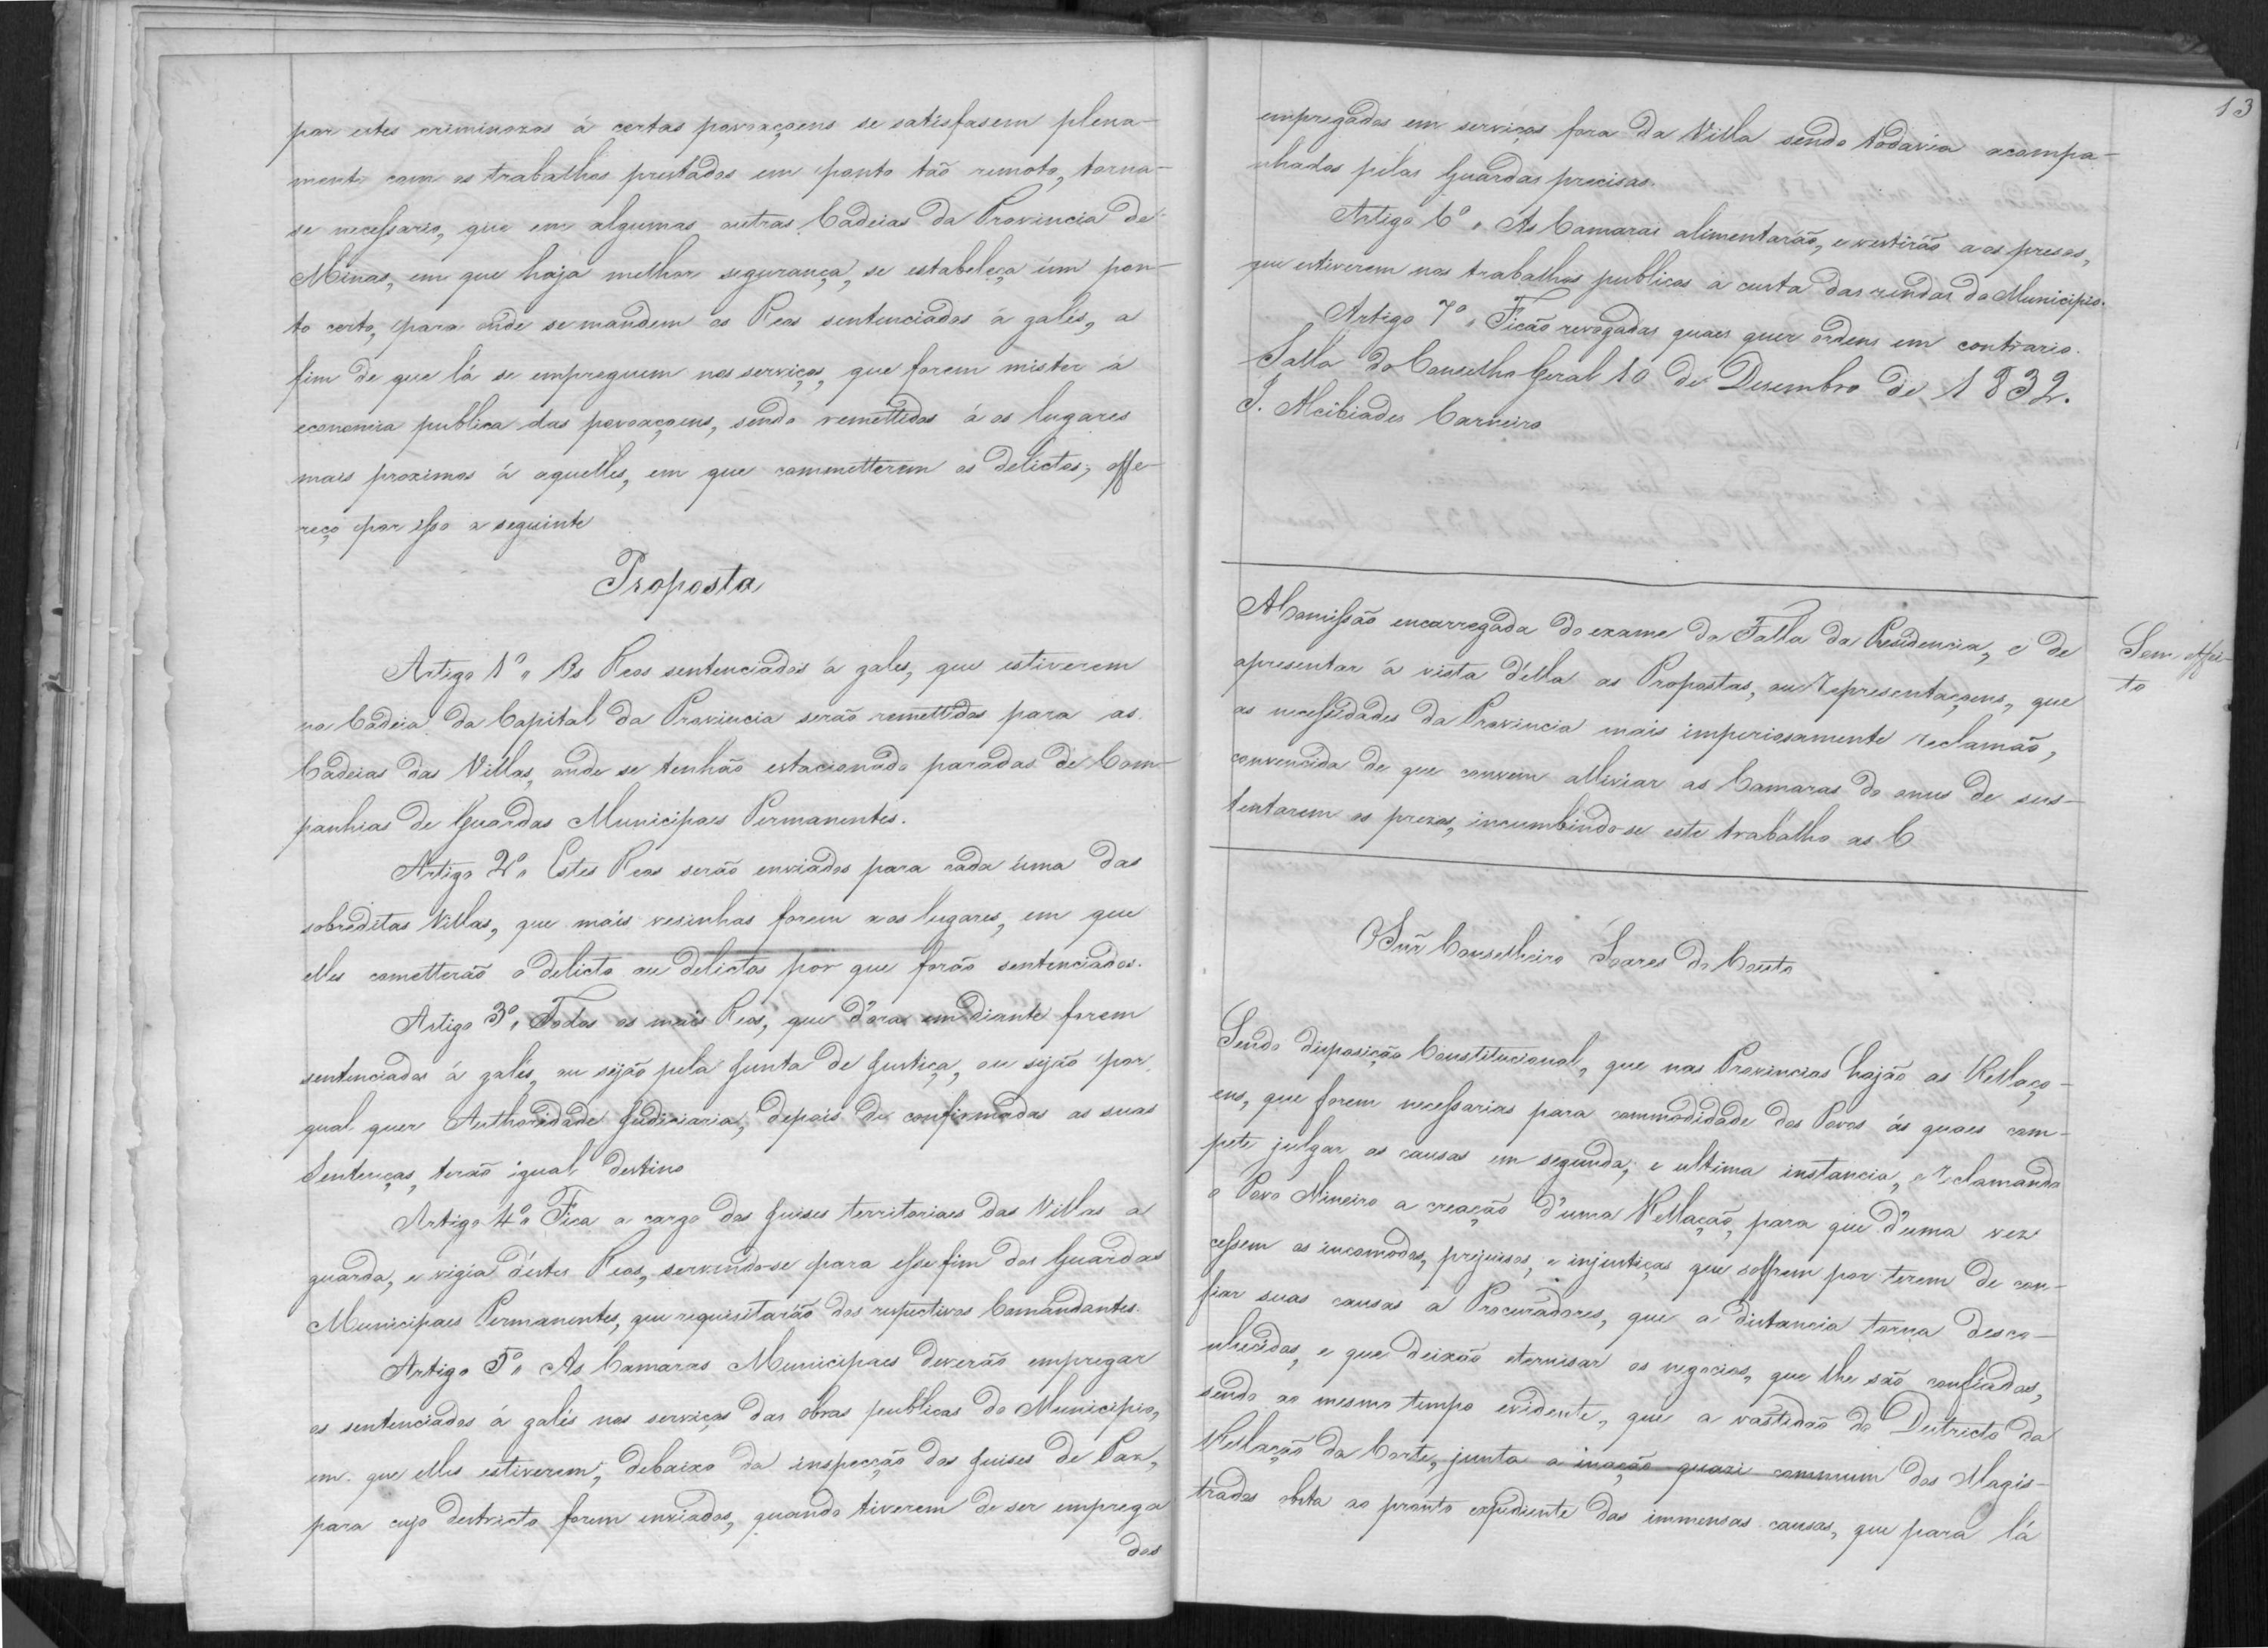 por estes criminozos á certas povoaçoens se satisfasem plena-
mente com os trabalhos prestados em ponto tão remoto, torna-
se necessario, que em algumas outras Cadeias da Provincia de
Minas, em que haja melhor segurança, se estabeleça um pon-
to certo, para onde se mandem os Reos sentenciados á galés, a
fim de que lá se empreguem nos serviços, que forem mister á
economia publica das povoaçoens, sendo remettidos á os lugares
mais proximos á aquelles, em que commetterem os delictos; offe-
reço por isso a seguinte
Proposta
Artigo 1º Os Reos sentenciados á gales, que estiverem
na Cadeia da Capital da Provincia serão remettidos para as
Cadeias das Villas, onde se tenhão estacionado paradas de Com-
panhias de Guardas Municipaes Permanentes.
Artigo 2º Estes Reos serão enviados para cada uma das
sobreditas Villas, que mais vesinhas forem aos lugares, em que
elles cometterão o delicto ou delictos por que forão sentenciados.
Artigo 3º Todos os mais Reos, que d'ora em diante forem
sentenciados á galés, ou sejão pela Junta de Justiça, ou sejão por
qual quer Authoridade Judiciaria, depois de confirmadas as suas
Sentenças, terão igual destino
Artigo 4º Fica a cargo dos Juises territoriaes das Villas a
guarda, e vigia d'estes Reos, servindo-se para esse fim dos Guardas
Municipaes Permanentes, que requisitarão dos respectivos Comandantes.
Artigo 5º As Camaras Municipaes deverão empregar
os sentenciados á galés nos serviços das obras publicas do Municipio,
em que elles estiverem, debaixo da inspecção dos Juises de Paz,
para cujo destricto forem enviados, quando tiverem de ser emprega
dos
13
empregados em serviços fora da Villa sendo todavia acompa-
nhados pelas Guardas precisas.
Artigo 6º As Camaras alimentarão, e vestirão a os presos,
que estiverem nos trabalhos publicos á custa das rendas do Municipio.
Artigo 7º Ficão revogadas quaes quer ordens em contrario.
Salla do Conselho Geral 10 de Desembro de 1832.
J. Alcibiades Carneiro
A Comissão encarregada do exame da Falla da Presidencia, e de
apresentar á vista d'ella as Propostas, ou representaçoens, que
as necessidades da Provincia mais imperiosamente reclamão,
convencida de que convem alliviar as Camaras do onus de sus-
tentarem os prezos, incumbindo-se este trabalho as C
Sem effei-
to
O Snr̃ Conselheiro Soares do Couto
Sendo disposição Constitucional, que nas Provincias hajão as Rellaço-
ens, que forem necessarias para commodidade dos Povos ás quaes com-
pete julgar as causas em segunda, e ultima instancia, e reclamando
o Povo Mineiro a creação d'uma Rellação, para que d'uma vez
cessem os incomodos, prejuisos, e injustiças que soffrem por terem de con-
fiar suas causas a Procuradores, que a distancia torna desco-
nhecidos, e que deixão eternisar os negocios, que lhe são confiados,
sendo ao mesmo tempo evidente, que a vastidão do Destricto da
Rellação da Corte, junta a inação quazi commum dos Magis-
trados obsta ao pronto expediente das immensas causas, que para lá